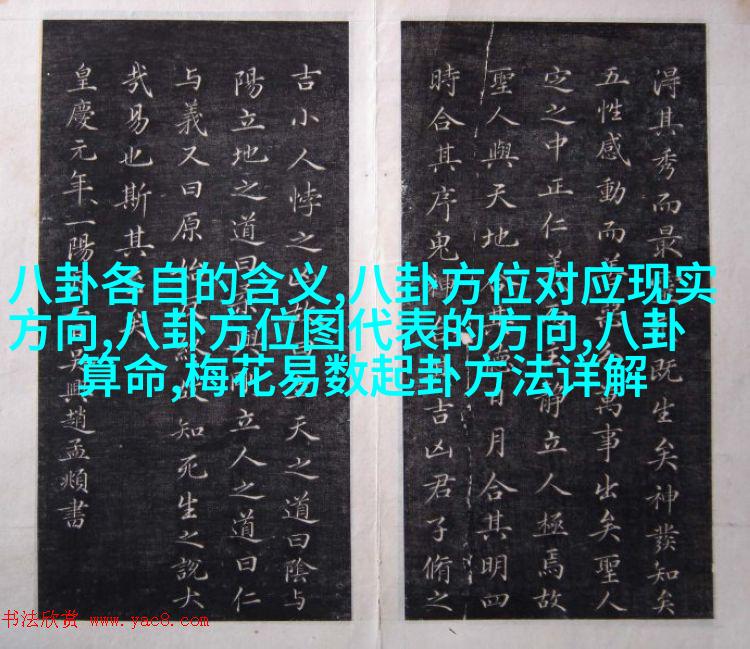 八卦各自的含义,八卦方位对应现实
方向,八卦方位图代表的方向,八卦
算命,梅花易数起卦方法详解
淂其秀而最既生矣神發知矣
五性感動而善萬事出矣聖人
定之中正仁義主靜立人極焉故
聖人與天地合其德日月合其明四
時合其序鬼神吉凶君子脩之
吉小人悖之凶天之道曰陰与
陽立地之道曰柔立人之道曰仁
与義又曰原始知死生之說大
哉易也斯其矣
皇慶元年一陽吳興趙孟頫書
书法欣赏 www.yac8.com